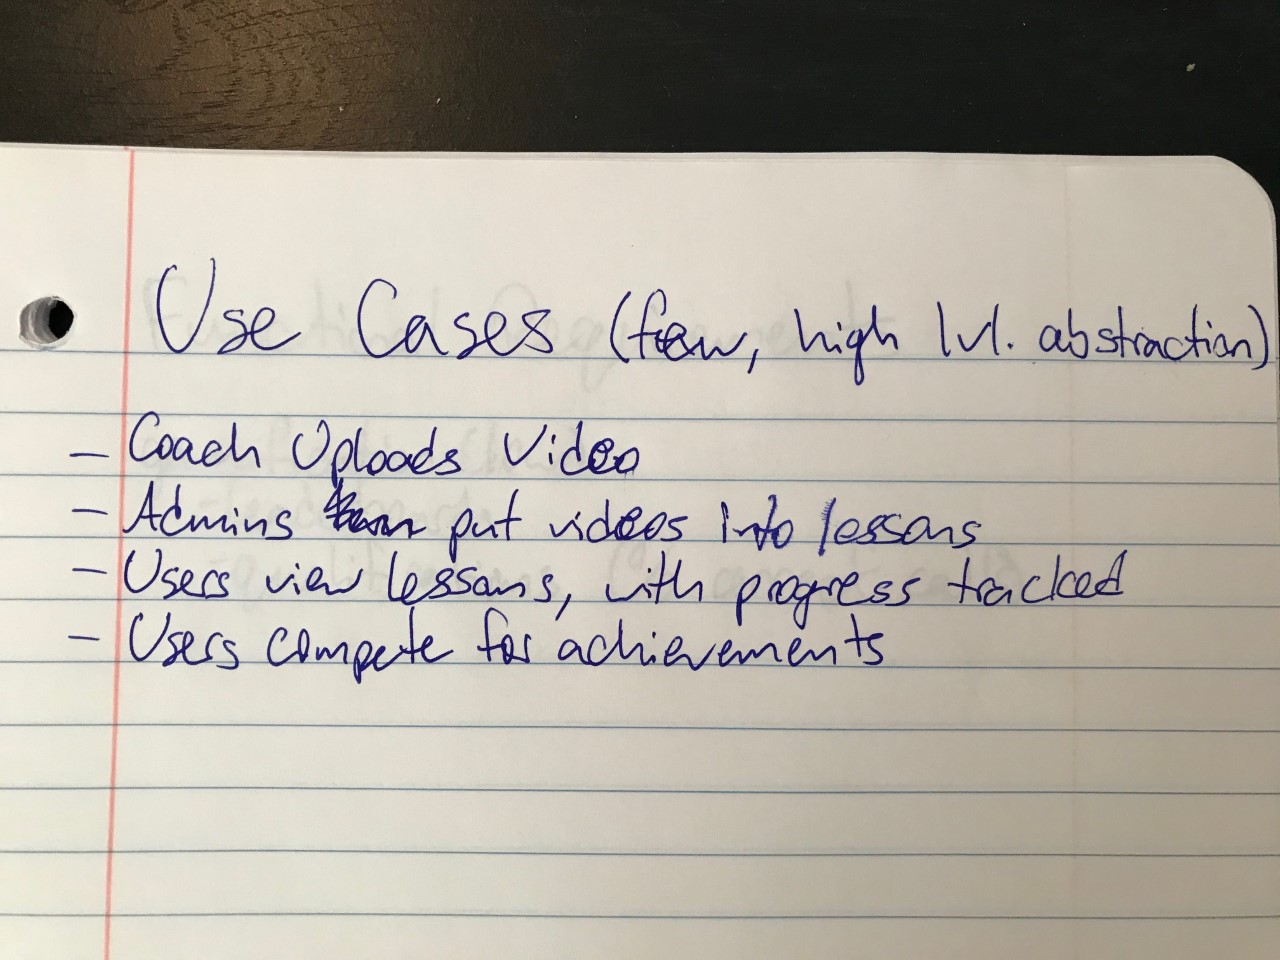 Use Cases (few, high lvl. abstraction)
- Coach Uploads Video
- Admins put videos into lessons
- Users view lessons, with progress tracked
- Users compete for achievements